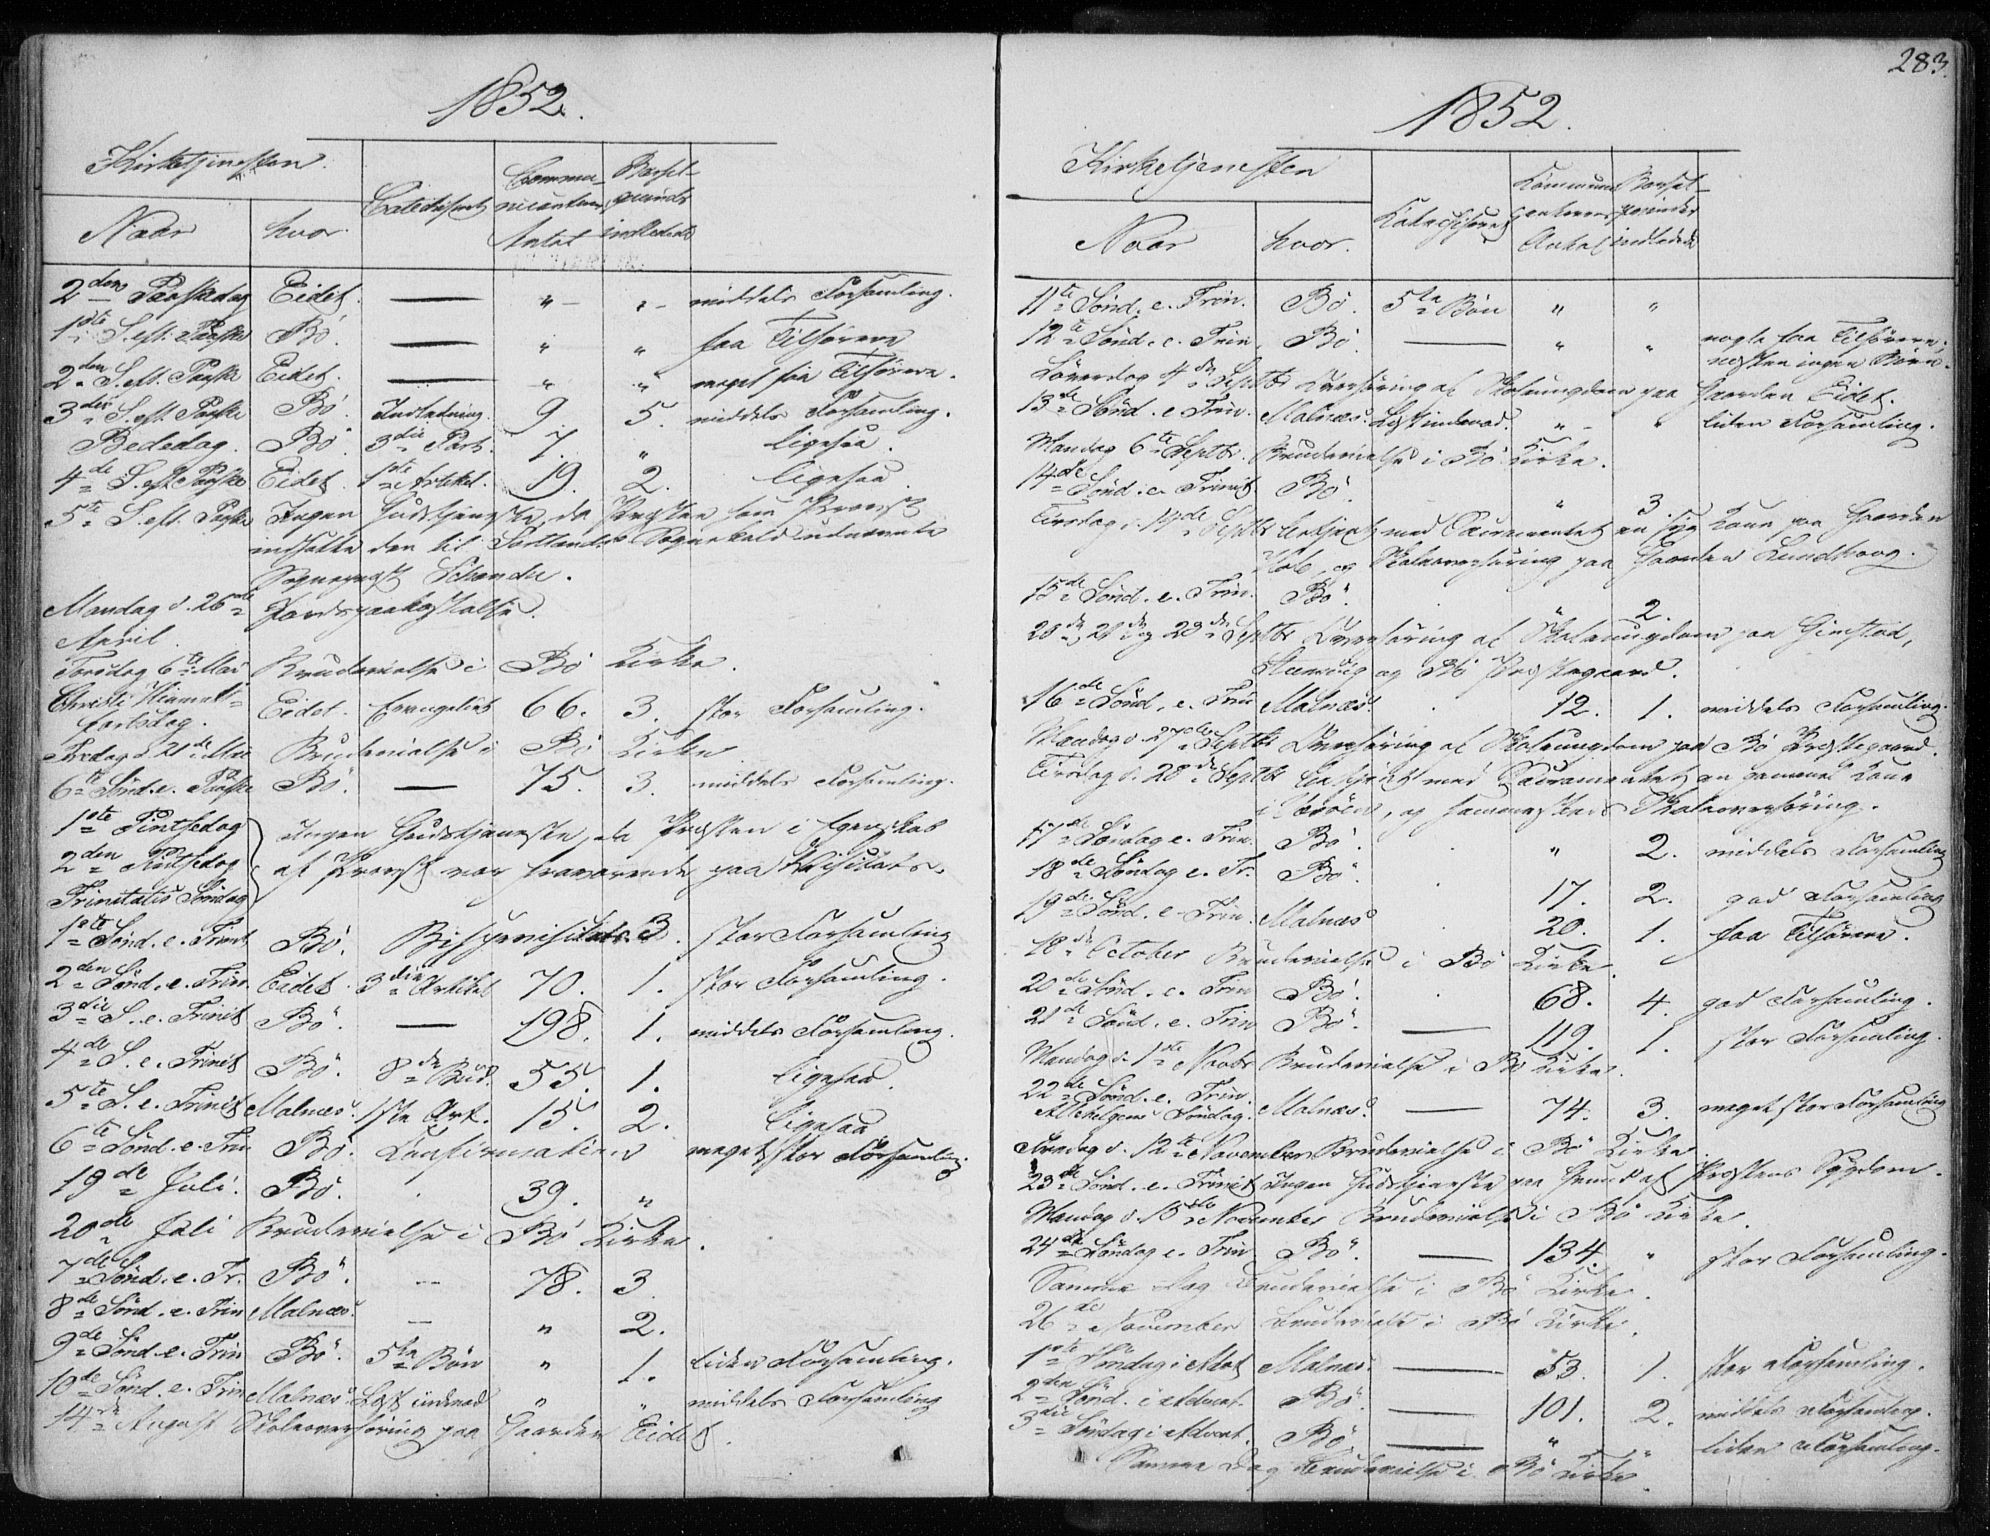 1852.
Kirketjenesten
Catechiseret
Commu-
nicanternes
Antal
Barsel-
qvinder
indledede
Naar
hvor.
2den Paaskedag Eidet. — " " middels Forsamling.
1ste S. eft. Paaske Bö. — " " faa Tilhørere
2den S. eft. Paaske Eidet. — " " meget faa Tilhørere.
3die S. eft. Paaske Bö. Indledning. 9 5. middels Forsamling.
Bededag. Bö. 3die Part. 7. " ligesaa.
4de S. eft. Paaske Eidet. 1ste Artikel. 19. 2. ligesaa.
5te S. eft. Paaske Ingen Gudstjeneste, da Præsten som Provst
indsatte den til Sortlands Sognekald udnævnte
Sognepræst Schanche.
Mandag d. 26de
April.
Torsdag 6te Mai Brudevielse i Bö Kirke.
Christi Himmel-
fartsdag. Eidet. Evangeliet 66. 3. stor Forsamling.
Fredag d. 21de Mai Brudevielse i Bö Kirke
6te Sönd. e. Paaske Bö. — 75. 3. middels Forsamling.
1ste Pintsedag
2den Pintsedag
Trinitatis Söndag
Ingen Gudstjeneste, da Præsten i Egenskab
af Provst var fraværende paa Visitats.
1ste Sönd. e. Trinit. Bö. Bispevisitats 3. stor Forsamling
2den Sönd. e. Trin. Eidet. 3die Artikel 70. 1. stor Forsamling.
3die S. e. Trinit. Bö. — 198. 1. middels Forsamling.
4de S. e. Trinit Bö. 8de Bud. 55. 1. ligesaa.
5te S. e. Trinit Malnæs. 1ste Art. 15. 2. ligesaa
6te Sönd. e. Trin Bö. Confirmation meget stor Forsamling.
19de Juli. Bö. 39. "
20de Juli Brudevielse i Bö Kirke.
7de Sönd. e. Tr. Bö. — 78. 3.
8de Sönd. e. Trin Malnæs. — " 2.
9de Sönd. e. Trin Bö. 5te Bön " 1. liden Forsamling.
10de Sönd. e. Trin Malnæs. Løst underved " " middels Forsamling
14de August Skoleoverhöring paa Gaarden Eidet.
283.
1852.
Kirketjenesten
Katechiseret
Kommuni-
canternes
Antal
Barsel-
qvinder
indledede
Naar
hvor.
11te Sönd. e. Trin. Bö. 5te Bön " "
12te Sönd. e. Trin. Bö. — " " nogle faa Tilhørere;
næsten ingen Börn.
Löverdag 4de Septbr Overhöring af Skoleungdom paa Gaarden Eidet.
13de Sönd. e. Trin. Malnæs. " " liden Forsamling.
Mandag 6te Septbr. Brudevielse i Bö Kirke.
14de Sönd. e. Trinit Bö. " 3.
Tirsdag d. 14de Septbr betjent med Sacramentet en syg Kone paa Gaarden
og Skoleoverhöring paa Gaarden Lundhoug.
15de Sönd. e. Trin. Bö. " 2.
20de, 21de og 22de Septbr Overhöring af Skoleungdom paa Gimstad,
Steenvig og Bö Præstegaard.
16de Sönd. e. Trin Malnæs. 12. 1. middels Forsamling.
Mandag d. 27de Septbr Overhöring af Skoleungdom paa Bö Præstegaard.
Tirsdag d. 28de Septbr betjent med Sacramentet en gammel Kone
og sammesteds Skoleoverhöring.
17de Söndag e. Trin. Bö. " 2. middels Forsamling
18de Söndag e. Tr. Bö. 17. 2. god Forsamling
19de Sönd. e. Trin. Malnæs 20. 1. faa Tilhørere.
18de October Brudevielse i Bö Kirke.
20de Sönd. e. Trin Bö. 68. 4. god Forsamling.
21de Sönd. e. Trin Bö. — 119. 1. stor Forsamling.
Mandag d. 1ste Novbr Brudevielse i Bö Kirke.
22de Sönd. e. Trin.
Allehelgens Söndag. Malnæs. — 74. 3. meget stor Forsamling
Fredag d. 12te November Brudevielse i Bö Kirke
23de Sönd. e. Trinit Ingen Gudstjeneste paa Grund af Præstens Sygdom.
Mandag d. 15de November Brudevielse i Bö Kirke.
24de Söndag e. Trin Bö. — 134. " stor Forsamling.
Samme Dag Brudevielse i Bö Kirke.
26de November Brudevielse i Bö Kirke.
1ste Söndag i Advt Malnæs — 53. 1. stor Forsamling.
2den Sönd. i Advent. Bö. — 101. 2. middels Forsamling.
3die Söndag i Advent. Bö. — " " liden Forsamling.
Samme Dag Brudevielse i Bö Kirke.